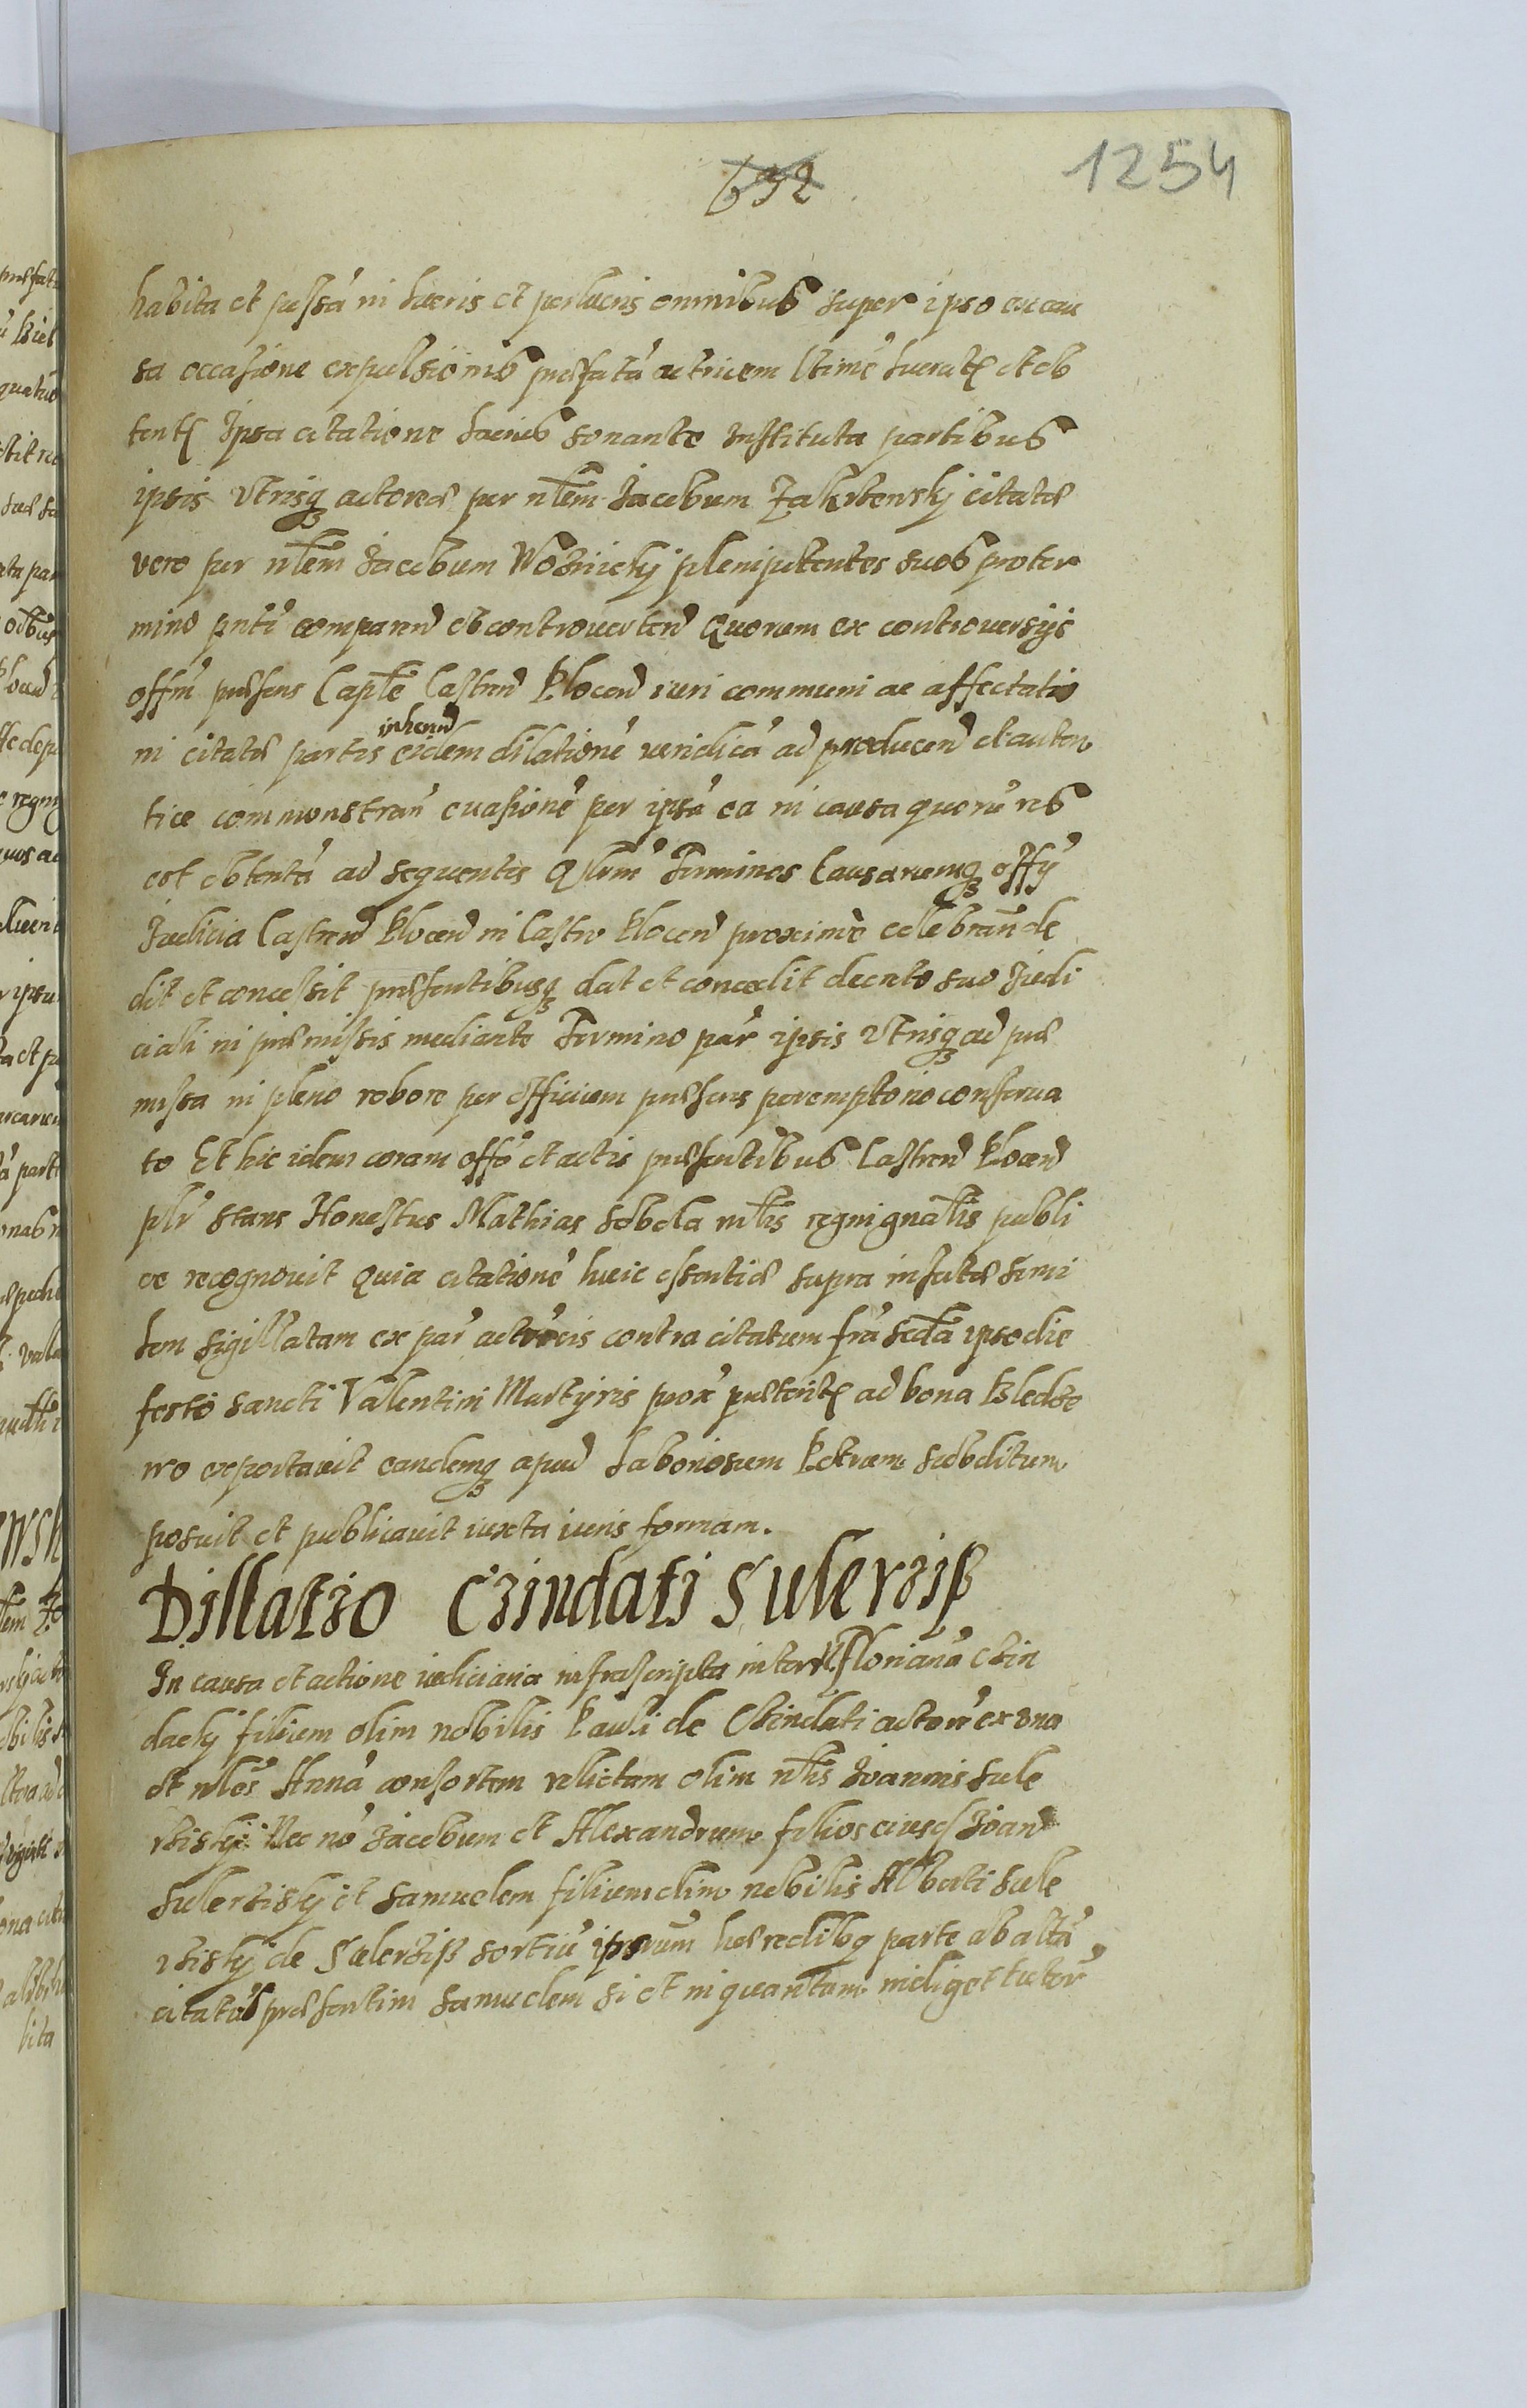 632
1254
habita et passa in lucris et perlucris omnibus super ipso ex cau
sa occasione expulsionis praefatā actricem ltime lucratę et ob
tentę Ipsa citatione latius sonante Instituta partibus
ipsis vtrisq actorea per nlem Jacobum Zakrzensky citata
vero per nlem Jacobum Woznicky plenipotentes suos pro ter
mino pnti comparen et controuerten Quorum ex controversijs
offm praesens Captle Castren Plocen iuri communi ac affectatio
ni citatae partis inheren eidem dilationē veridicā ad producen et auten
tice commonstran euasionē per ipsā ea in causa quorū res
est obtentā ad sequentes Qlrm̄ Terminos Causarumq offy
Judicia Castren Plocen in Castro Plocen proxime celebran de
dit et concessit praesentibusq dat et concedit decreto suo Judi
ciali in praemissis mediante Termino par ipsis vtrisq ad prae
missa in pleno robore per officium praesens peremptorio conserua
to Et hic idem coram offo et actis praesentibus Castren Plocen
plr stans Honestus Mathias Sobola mlis regni gnalis publi
ce recognouit Quia citationē huic essentiae supra insertae simi
lem sigillatam ex par actricis contra citatum fra scda ipso die
festo sancti Valentini Martyris prox praeteritę ad bona Bledze
wo exportauit eandemq apud Laboriosum Petrum subditum
posuit et publicauit iuxta iuris formam.
Dillatio Czindati Sulerzisz
In causa et actione iudiciaria infrascripta inter N. Florianū Czin
dacky filium olim nobilis Pauli de Czindati actorē ex vna
et nles Annā consortem relictam olim nlis Joannis Sule
rzisky Nec nō Jacobum et Alexandrum filios eiusd Joan
Sulerzisky et Samuelem filium olim nobilis Alberti Sule
rzisky de Sulerzisz sortiū ipsarum haeredibq parte ab altā
citatos praesertim Samuelem si et in quantum indiget tutor